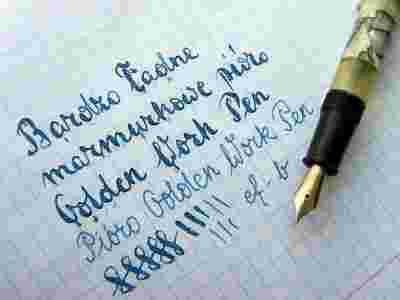 Bardzo Ładne
marmurkowe pióro
Golden Work Pen
Pióro Golden Work Pen
ef-b